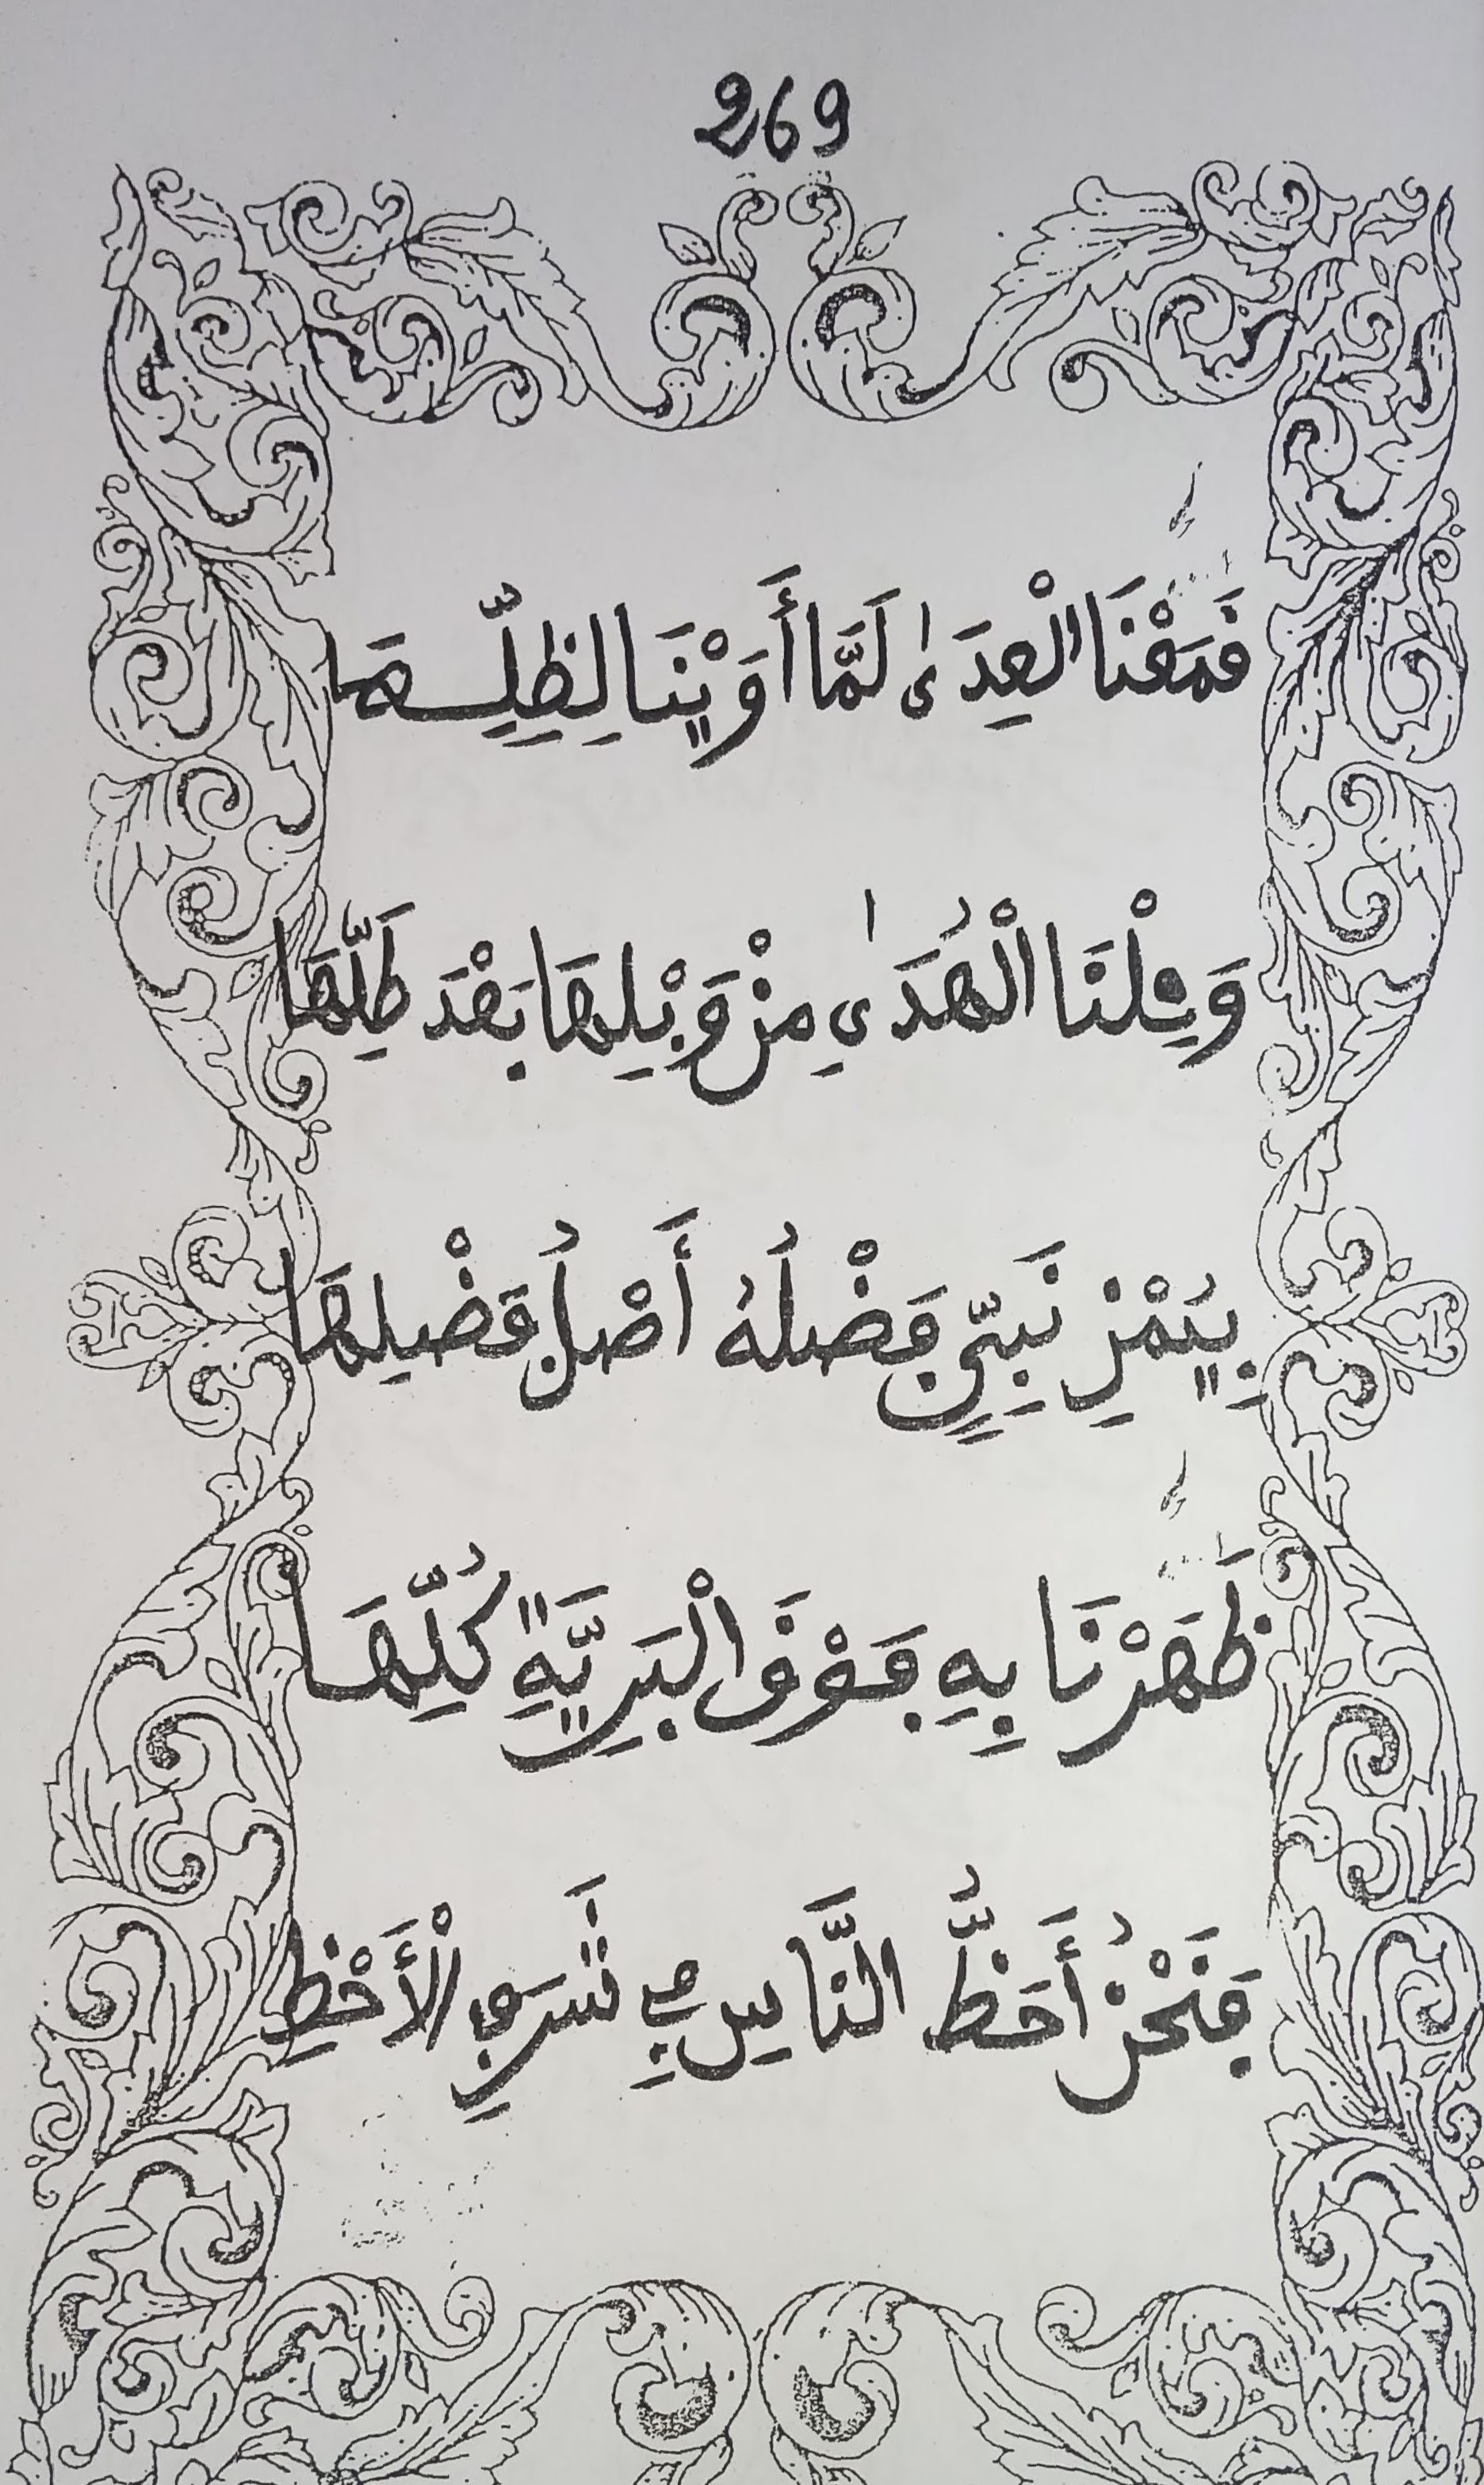 269
قَمَعْنَا الْعِدَىٰ لَمَّا أَوَيْنَا لِظِلِّهَا
وَنِلْنَا الْهُدَىٰ مِنْ وَبْلِهَا بَعْدَ طَلِّهَا
بِيُمْنِ نَبِيٍّ فَضْلُهُ أَصْلُ فَضْلِهَا
ظَهَرْنَا بِهِ فَوْقَ الْبَرِيَّةِ كُلِّهَا
فَنَحْنُ أَحَظُّ النَّاسِ فِي شَرَفِ الْأَحْظِ